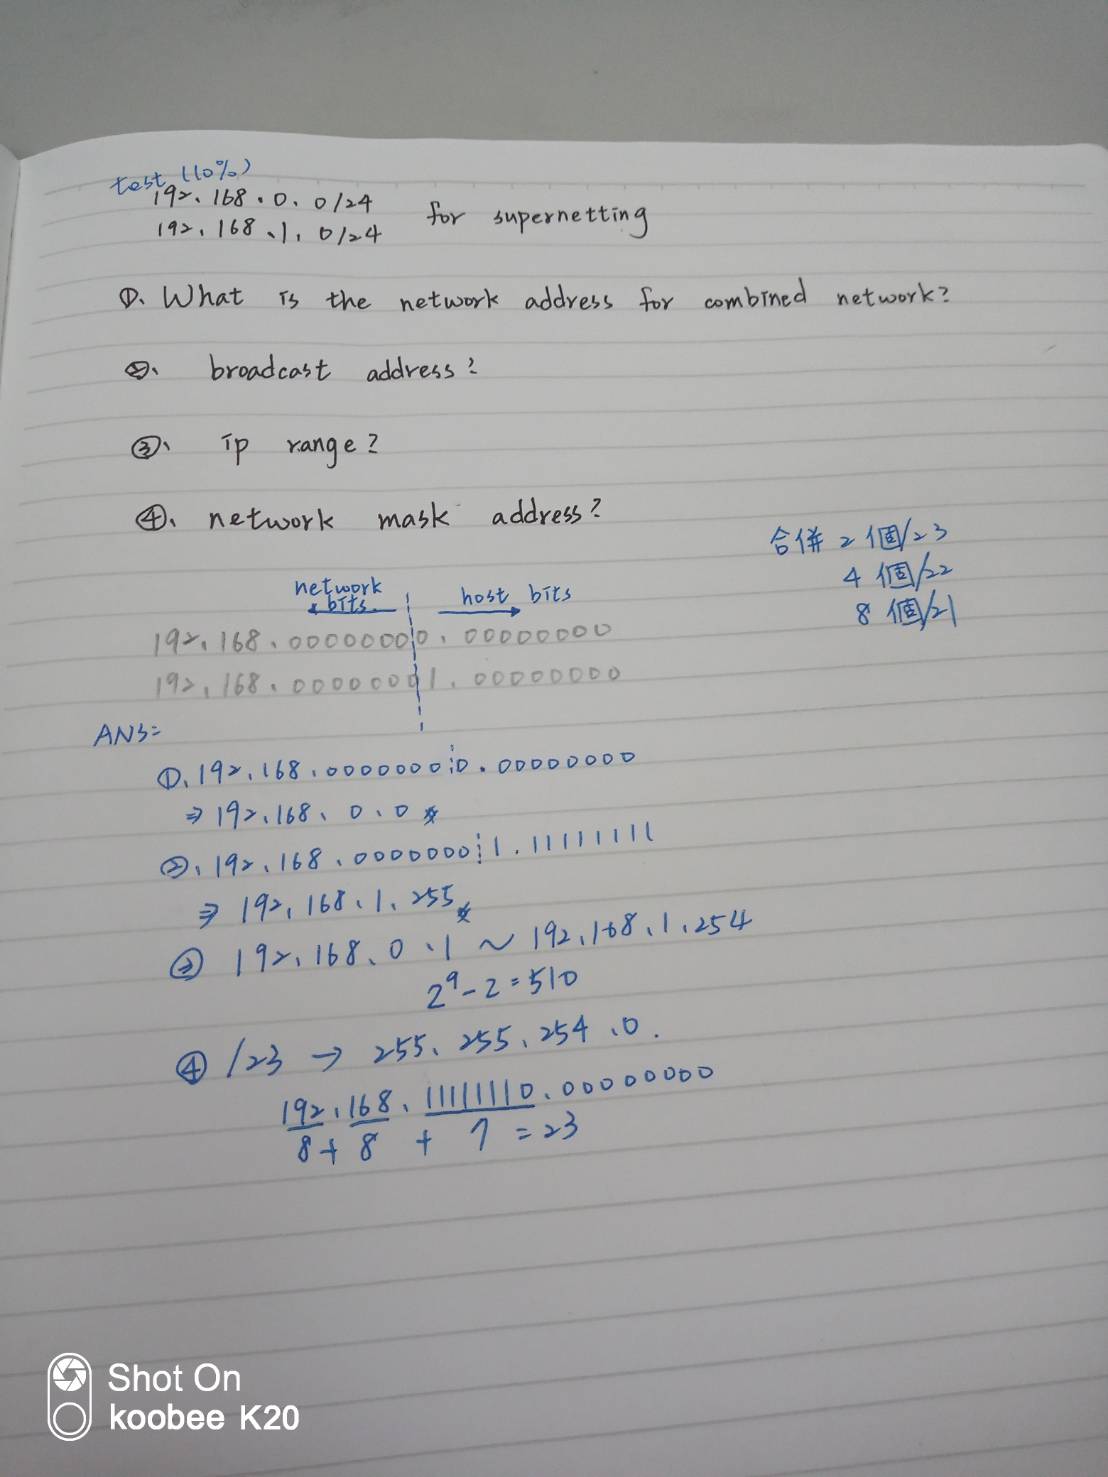 test (10%)
192.168.0.0/24
192.168.1.0/24
for supernetting
①. What is the network address for combined network?
②. broadcast address?
③. ip range?
④. network mask address?
合併 2 個/23
4 個/22
8 個/21
network bits
host bits
192.168.00000000.00000000
192.168.00000001.00000000
ANS=
①.192.168.00000000.00000000
⇒ 192.168.0.0
②.192.168.00000001.11111111
⇒ 192.168.1.255
③ 192.168.0.1 ~ 192.168.1.254
2⁹-2=510
④ /23 → 255.255.254.0.
192.168.11111110.00000000
8+8+7=23
Shot On
koobee K20